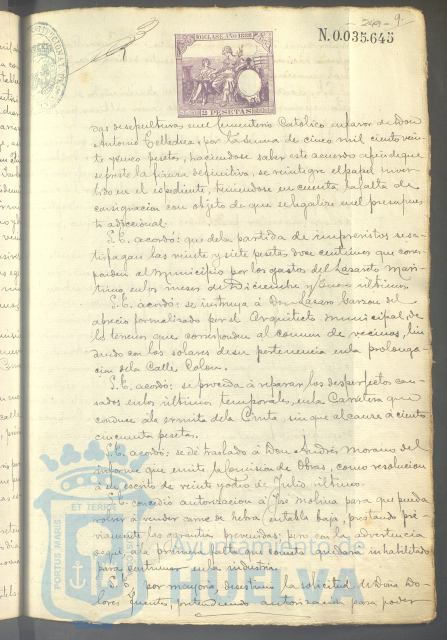 249 - 9.
N.0.035.645
10ª CLASE. AÑO 1888
2 PESETAS
das de sepulturas en el Cementerio Católico en favor de Don
Antonio por la suma de cinco mil ciento vein-
te y cinco pesetas, haciendose saber este acuerdo a fin de que
se preste la fianza definitiva, se reintegre el papel inver-
tido en el espediente, teniendose en cuenta la falta de
consignacion con objeto de que se legalize en el presupues-
to adiccional.
S.E. acordó: que de la partida de imprevistos se sa-
tisfagan las veinte y siete pesetas doce centimos que corres-
ponden al Municipio por los gastos del Lazareto Mari-
timo, en los meses de Diciembre y Enero últimos.
S.E. acordó: se instruya á Don Lázaro del
aprecio formalizado por el Arquitecto municipal, de
los terrenos que corresponden al comun de vecinos, lin-
dando con los solares de su pertenencia en la prolonga-
cion de la Calle Colon.
S.E. acordó: se proceda á reparar los desperfectos cau-
sados en los últimos temporales, en la Carretera que
conduce á la ermita de la Cinta, sin que alcance á ciento
cincuenta pesetas.
S.E. acordó: se dé traslado á Don Andrés Morano del
informe que emite la Comision de Obras, como resolucion
á su escrito de veinte y ocho de Julio último.
S.E. concedió autorizacion á José Molina para que pueda
volver á vender carne de hebra en tabla baja, prestando pré-
viamente las garantias prevenidas; pero con la advertencia
de que á la primera falta que cometa quedará inhabilitado
para continuar en la industria.
S.E., por mayoria, desestimó la solicitud de Doña Do-
lores Fuentes, pretendiendo autorizacion para poder
PORTUS MARIS ET TERRE CUSTODIA
Ayuntamiento de
HUELVA